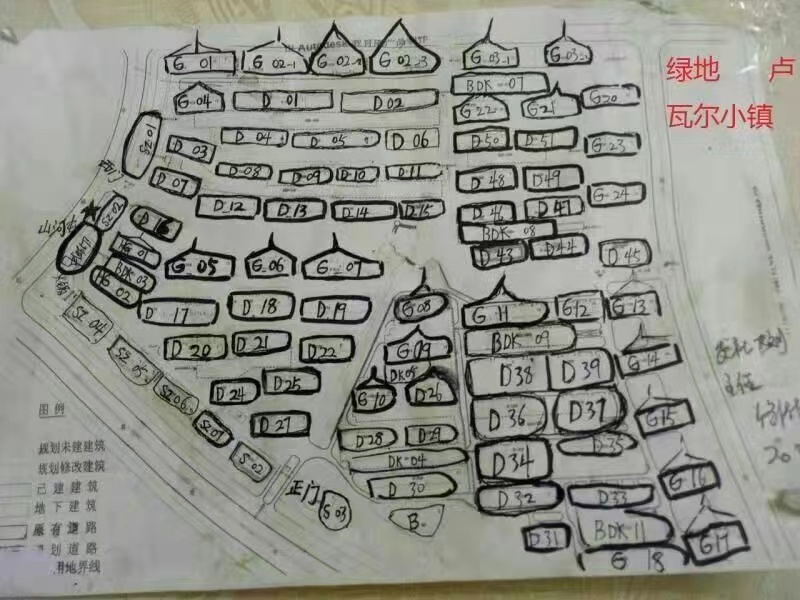 绿地 卢
瓦尔小镇
Autodesk
G 01 G 02-1 G 02-2 G 02-3 G 03-1
BDK 07
G 04 D 01 D 02 G 22 G 21 G 20
SZ 01 D 03 D 04 D 05 D 06 D 50 D 51 G 23
D 07 D 08 D 09 D 10 D 11 D 48 D 49 G 24
D 12 D 13 D 14 D 15 D 46 D 47
D 16 BDK 08
HG 01 D 43 D 44 D 45
BDK 03 G 05 G 06 G 07
HG 02
SZ 04 D 17 D 18 D 19 G 08 G 11 G 12 G 13
SZ 05 D 20 D 21 D 22 G 09 BDK 09 G 14
DK 05 D 38 D 39
SZ 06 D 24 D 25 G 10 D 26
SZ 07 D 27 D 36 D 37 G 15
D 28 D 29 D 35
S 02 DK 04 D 34 G 16
正门 S 03 D 30 D 32 D 33
B D 31 BDK 11 G 17
G 18
图例
规划未建建筑
规划修改建筑
已建建筑
地下建筑
原有道路
规划道路
用地界线